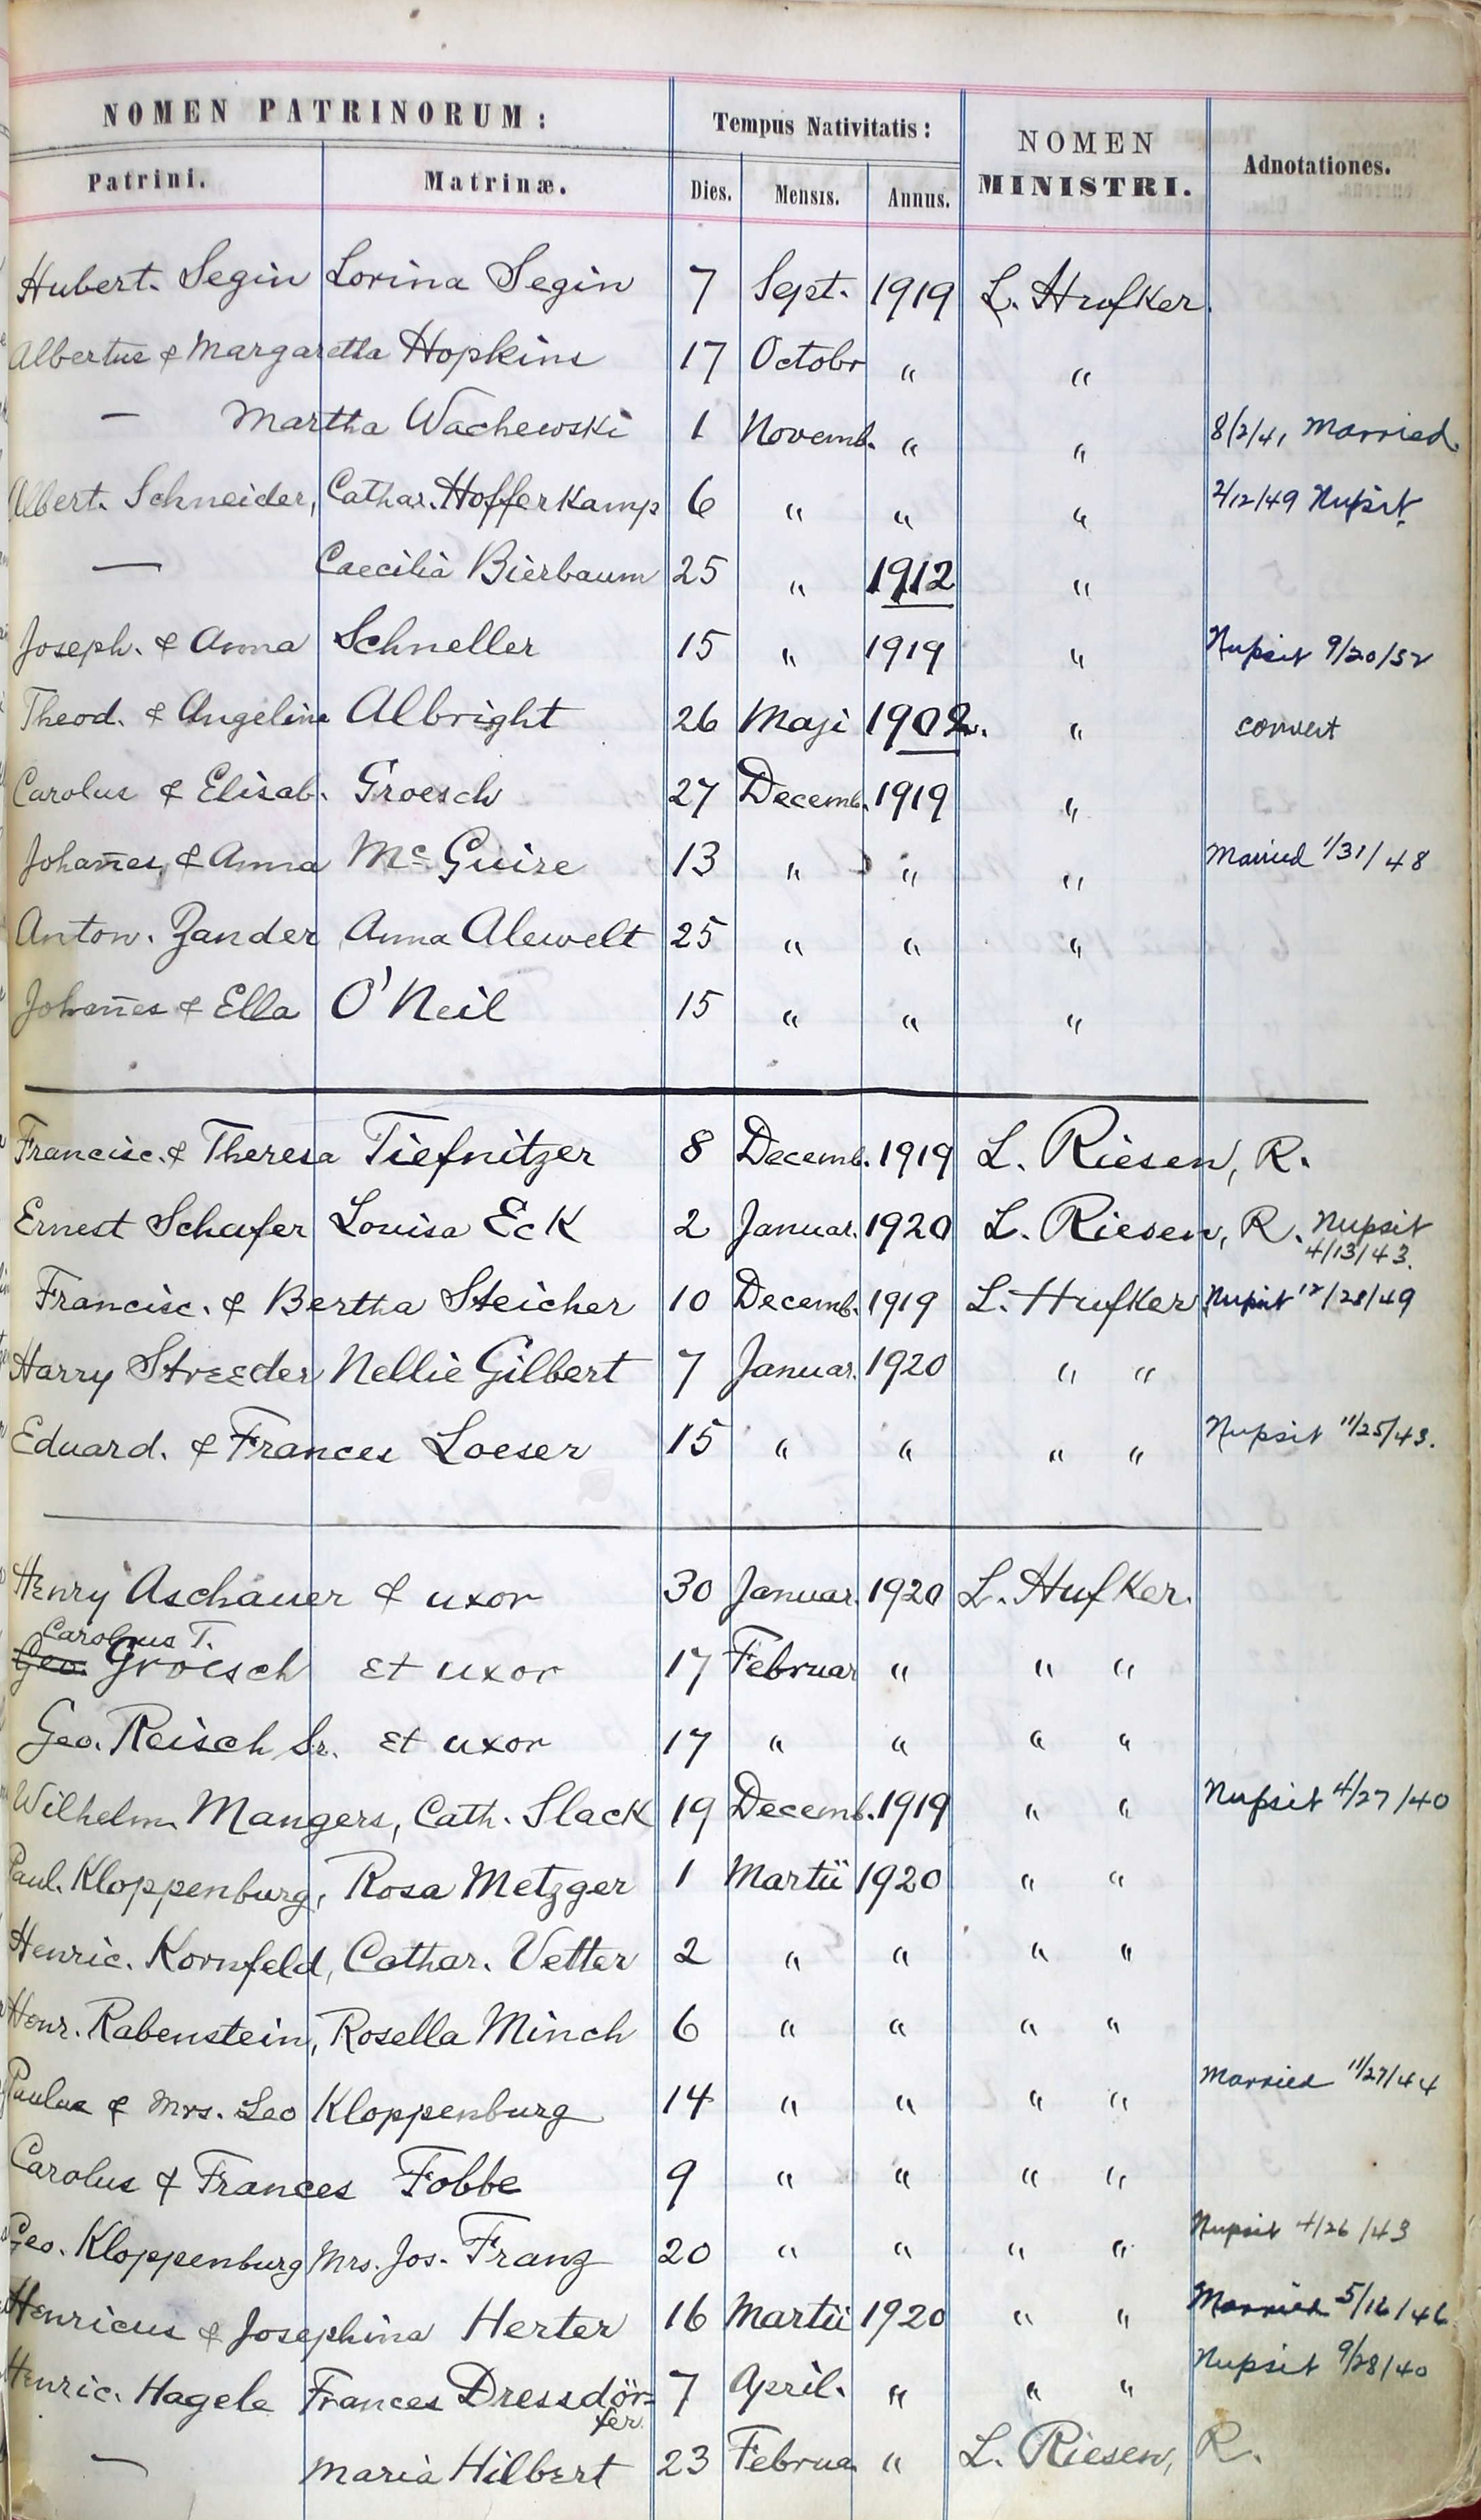 NOMEN PATRINORUM: Tempus Nativitatis: NOMEN MINISTRI. Adnotationes.
Patrini. Matrinæ. Dies. Mensis. Annus.
Hubert. Segin Lorina Segin 7 Sept. 1919 L. Hufker.
Albertus & Margaretha Hopkins 17 Octobr " "
— Martha Wachewski 1 Novemb. " " 8/2/41 Married.
Albert. Schneider, Cathar. Hofferkamp 6 " " " 2/12/49 Nupsit.
— Caecilia Bierbaum 25 " 1912 "
Joseph. & Anna Schneller 15 " 1919 " Nupsit 9/20/52
Theod. & Angelina Albright 26 Maji 1902. " convert
Carolus & Elisab. Groesch 27 Decemb. 1919 "
Johañes & Anna Mc Guire 13 " " " Married 1/31/48
Anton. Zander Anna Alewelt 25 " " "
Johañes & Ella O'Neil 15 " " "
Francisc. & Theresa Tiefnitzer 8 Decemb. 1919 L. Riesen, R.
Ernest Schafer Louisa Eck 2 Januar. 1920 L. Riesen, R. Nupsit
4/13/43.
Francisc. & Bertha Steicher 10 Decemb. 1919 L. Hufker Nupsit 12/28/49
Harry Streeder Nellie Gilbert 7 Januar. 1920 " "
Eduard. & Frances Loeser 15 " " " " Nupsit 11/25/43.
Henry Aschauer & uxor 30 Januar. 1920 L. Hufker.
Carolus T.
Geo. Groesch et uxor 17 Februar " " "
Geo. Reisch Sr. et uxor 17 " " " "
Wilhelm Mangers, Cath. Slack 19 Decemb. 1919 " " Nupsit 4/27/40
Paul. Kloppenburg, Rosa Metzger 1 Martii 1920 " "
Henric. Kornfeld, Cathar. Vetter 2 " " " "
Henr. Rabenstein, Rosella Minch 6 " " " "
Paulus & Mrs. Leo Kloppenburg 14 " " " " Married 11/27/44
Carolus & Frances Fobbe 9 " " " "
Geo. Kloppenburg Mrs. Jos. Franz 20 " " " " Nupsit 4/26/43
Henricus & Josephina Herter 16 Martii 1920 " " Married 5/16/46
Henric. Hagele Frances Dressdör= 7 April. " " " Nupsit 9/28/40
fer.
— Maria Hilbert 23 Februa " L. Riesen, R.